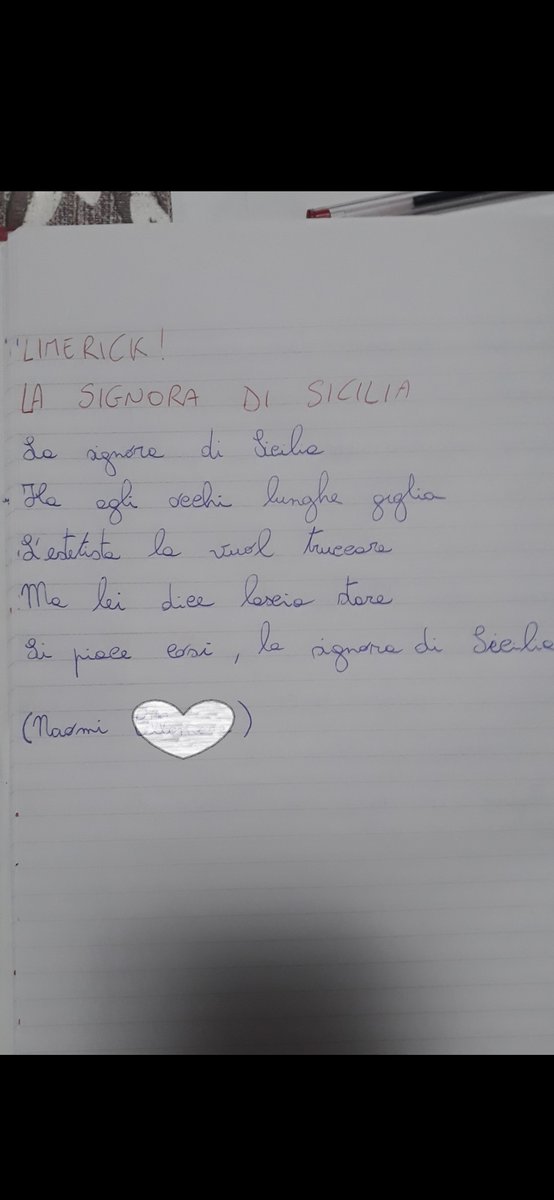 LIMERICK!
LA SIGNORA DI SICILIA
La signora di Sicilia
Ha agli occhi lunghe giglia
L'estetista la vuol truccare
Ma lei dice lascia stare
Si piace così, la signora di Sicilia
(Naomi )